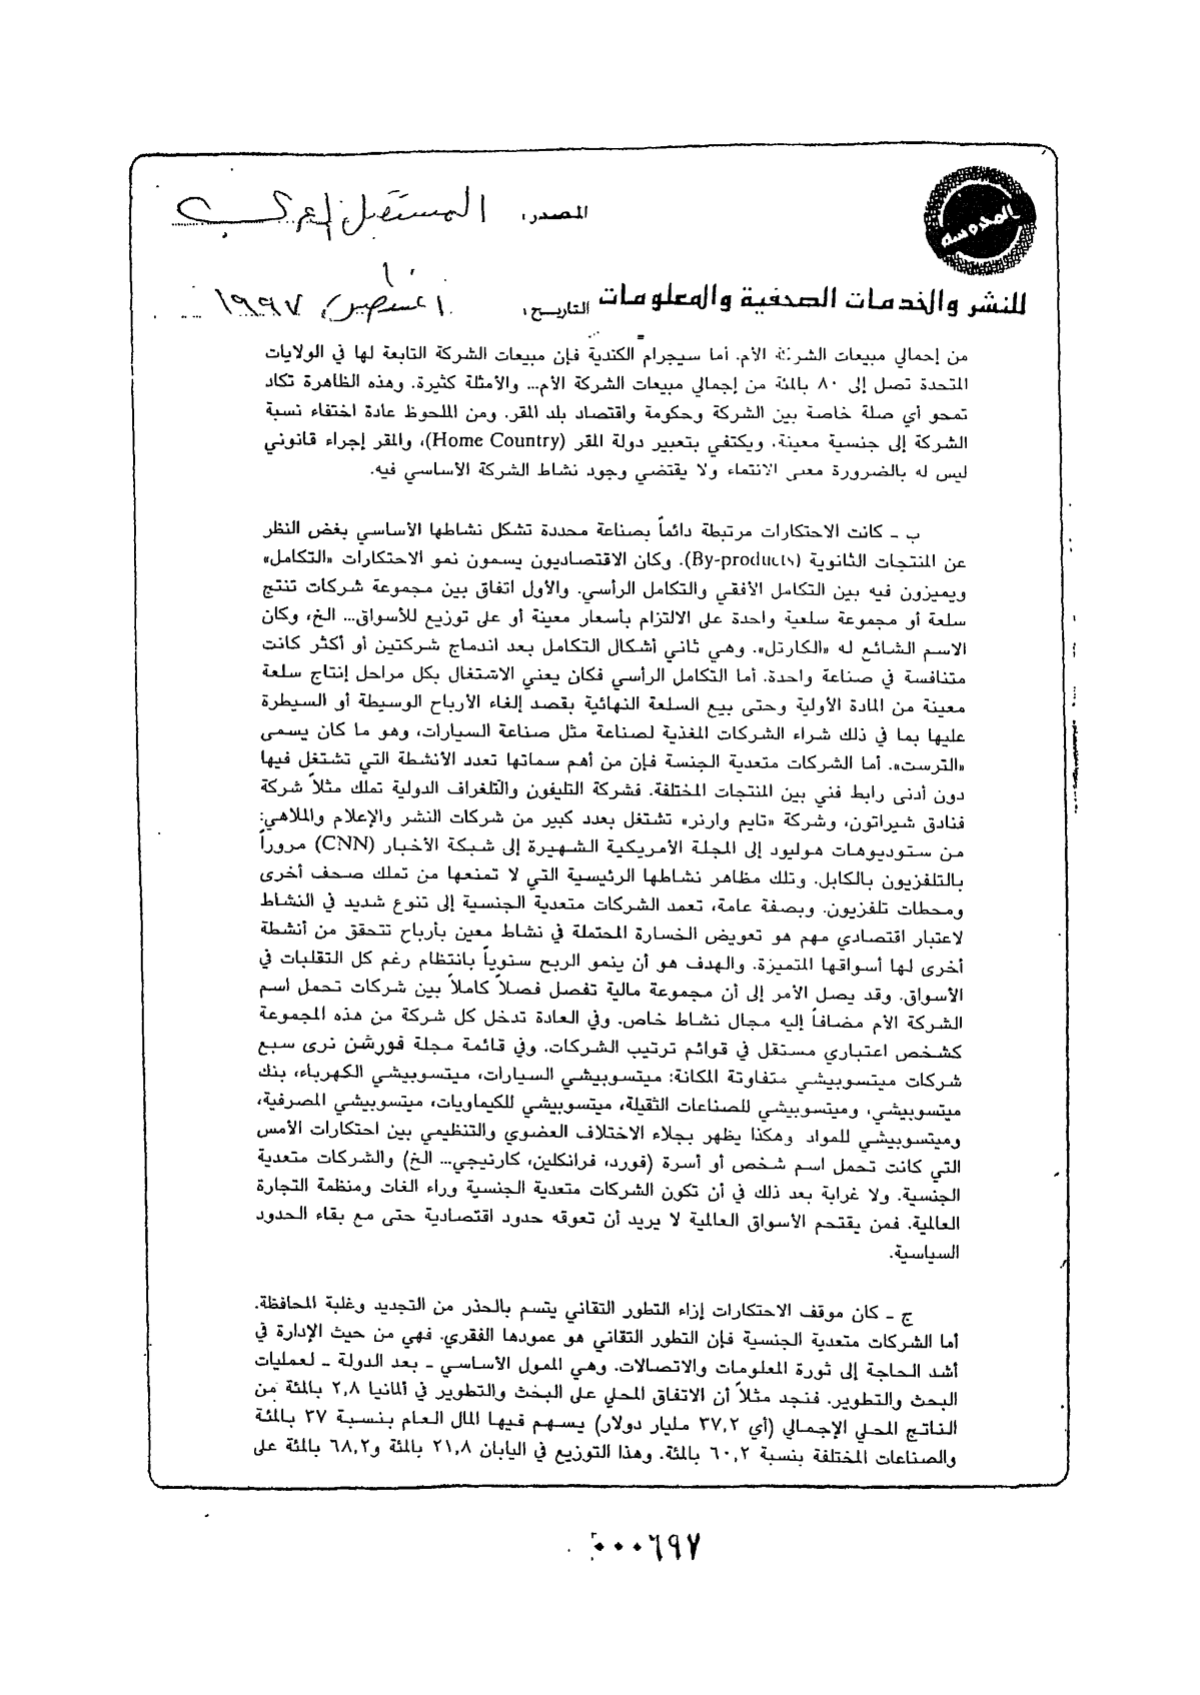 المحروسه
المصدر: المستقبل العربي
للنشر والخدمات الصحفية والمعلومات
التاريخ: ١ اغسطس ١٩٩٧
من إجمالي مبيعات الشركة الأم. أما سيجرام الكندية فإن مبيعات الشركة التابعة لها في الولايات
المتحدة تصل إلى ٨٠ بالمئة من إجمالي مبيعات الشركة الأم... والأمثلة كثيرة. وهذه الظاهرة تكاد
تمحو أي صلة خاصة بين الشركة وحكومة واقتصاد بلد المقر. ومن الملحوظ عادة اختفاء نسبة
الشركة إلى جنسية معينة. ويكتفي بتعبير دولة المقر (Home Country)، والمقر إجراء قانوني
ليس له بالضرورة معنى الانتماء ولا يقتضي وجود نشاط الشركة الأساسي فيه.
ب - كانت الاحتكارات مرتبطة دائماً بصناعة محددة تشكل نشاطها الأساسي بغض النظر
عن المنتجات الثانوية (By-products). وكان الاقتصاديون يسمون نمو الاحتكارات «التكامل»
ويميزون فيه بين التكامل الأفقي والتكامل الرأسي. والأول اتفاق بين مجموعة شركات تنتج
سلعة أو مجموعة سلعية واحدة على الالتزام بأسعار معينة أو على توزيع للأسواق... الخ، وكان
الاسم الشائع له «الكارتل». وهي ثاني أشكال التكامل بعد اندماج شركتين أو أكثر كانت
متنافسة في صناعة واحدة. أما التكامل الرأسي فكان يعني الاشتغال بكل مراحل إنتاج سلعة
معينة من المادة الأولية وحتى بيع السلعة النهائية بقصد إلغاء الأرباح الوسيطة أو السيطرة
عليها بما في ذلك شراء الشركات المغذية لصناعة مثل صناعة السيارات، وهو ما كان يسمى
«الترست». أما الشركات متعدية الجنسة فإن من أهم سماتها تعدد الأنشطة التي تشتغل فيها
دون أدنى رابط فني بين المنتجات المختلفة. فشركة التليفون والتلغراف الدولية تملك مثلاً شركة
فنادق شيراتون، وشركة «تايم وارنر» تشتغل بعدد كبير من شركات النشر والإعلام والملاهي:
من ستوديوهات هوليود إلى المجلة الأمريكية الشهيرة إلى شبكة الأخبار (CNN) مروراً
بالتلفزيون بالكابل. وتلك مظاهر نشاطها الرئيسية التي لا تمنعها من تملك صحف أخرى
ومحطات تلفزيون. وبصفة عامة، تعمد الشركات متعدية الجنسية إلى تنوع شديد في النشاط
لاعتبار اقتصادي مهم هو تعويض الخسارة المحتملة في نشاط معين بأرباح تتحقق من أنشطة
أخرى لها أسواقها المتميزة. والهدف هو أن ينمو الربح سنوياً بانتظام رغم كل التقلبات في
الأسواق. وقد يصل الأمر إلى أن مجموعة مالية تفصل فصلاً كاملاً بين شركات تحمل اسم
الشركة الأم مضافاً إليه مجال نشاط خاص. وفي العادة تدخل كل شركة من هذه المجموعة
كشخص اعتباري مستقل في قوائم ترتيب الشركات. وفي قائمة مجلة فورشن نرى سبع
شركات ميتسوبيشي متفاوتة المكانة: ميتسوبيشي السيارات، ميتسوبيشي الكهرباء، بنك
ميتسوبيشي، وميتسوبيشي للصناعات الثقيلة، ميتسوبيشي للكيماويات، ميتسوبيشي المصرفية،
وميتسوبيشي للمواد وهكذا يظهر بجلاء الاختلاف العضوي والتنظيمي بين احتكارات الأمس
التي كانت تحمل اسم شخص أو أسرة (فورد، فرانكلين، كارنيجي... الخ) والشركات متعدية
الجنسية. ولا غرابة بعد ذلك في أن تكون الشركات متعدية الجنسية وراء الغات ومنظمة التجارة
العالمية. فمن يقتحم الأسواق العالمية لا يريد أن تعوقه حدود اقتصادية حتى مع بقاء الحدود
السياسية.
ج - كان موقف الاحتكارات إزاء التطور التقاني يتسم بالحذر من التجديد وغلبة المحافظة.
أما الشركات متعدية الجنسية فإن التطور التقاني هو عمودها الفقري. فهي من حيث الإدارة في
أشد الحاجة إلى ثورة المعلومات والاتصالات. وهي الممول الأساسي - بعد الدولة - لعمليات
البحث والتطوير. فنجد مثلاً أن الاتفاق المحلي على البخث والتطوير في ألمانيا ٢,٨ بالمئة من
الناتج المحلي الإجمالي (أي ٣٧,٢ مليار دولار) يسهم فيها المال العام بنسبة ٣٧ بالمئة
والصناعات المختلفة بنسبة ٦٠,٢ بالمئة. وهذا التوزيع في اليابان ٢١,٨ بالمئة و٦٨,٢ بالمئة على
٠٠٠٦٩٧